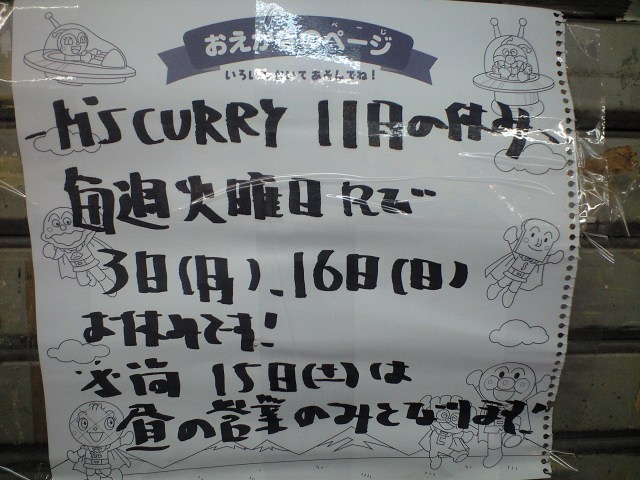 おえかきページ
いろいろかいてあそんでね!
~M'S CURRY 11月の休み~
毎週火曜日及び
3日(月)、16日(日)
お休みです!
尚 15日(土)は
昼の営業のみとなります!